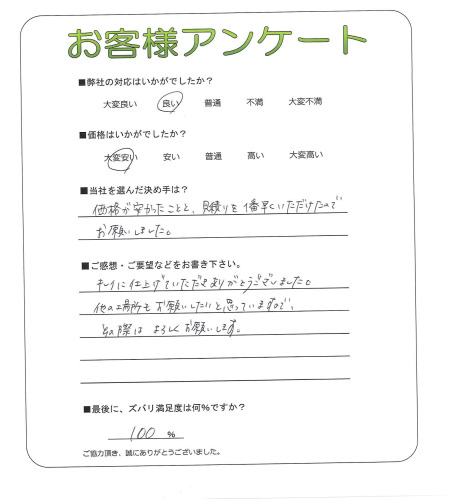 お客様アンケート
■弊社の対応はいかがでしたか？
大変良い 良い 普通 不満 大変不満
■価格はいかがでしたか？
大変安い 安い 普通 高い 大変高い
■当社を選んだ決め手は？
価格が安かったことと、見積りを1番早くいただけたので
お願いしました。
■ご感想・ご要望などをお書き下さい。
キレイに仕上げていただきありがとうございました。
他の場所もお願いしたいと思っていますので、
その際はよろしくお願いします。
■最後に、ズバリ満足度は何%ですか？
100 %
ご協力頂き、誠にありがとうございました。